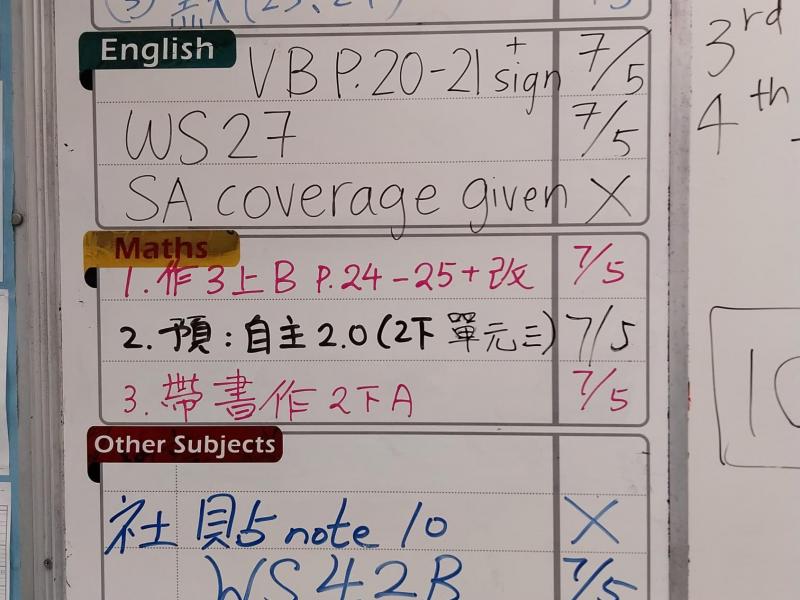 English
VB P.20-21 + sign 7/5
WS 27 7/5
SA coverage given X
Maths
1. 作3上B P.24-25+改 7/5
2. 預:自主2.0(2下單元三) 7/5
3. 帶書作2下A 7/5
Other Subjects
社 貼 note 10 X
WS 4.2B 7/5
3rd
4th
10